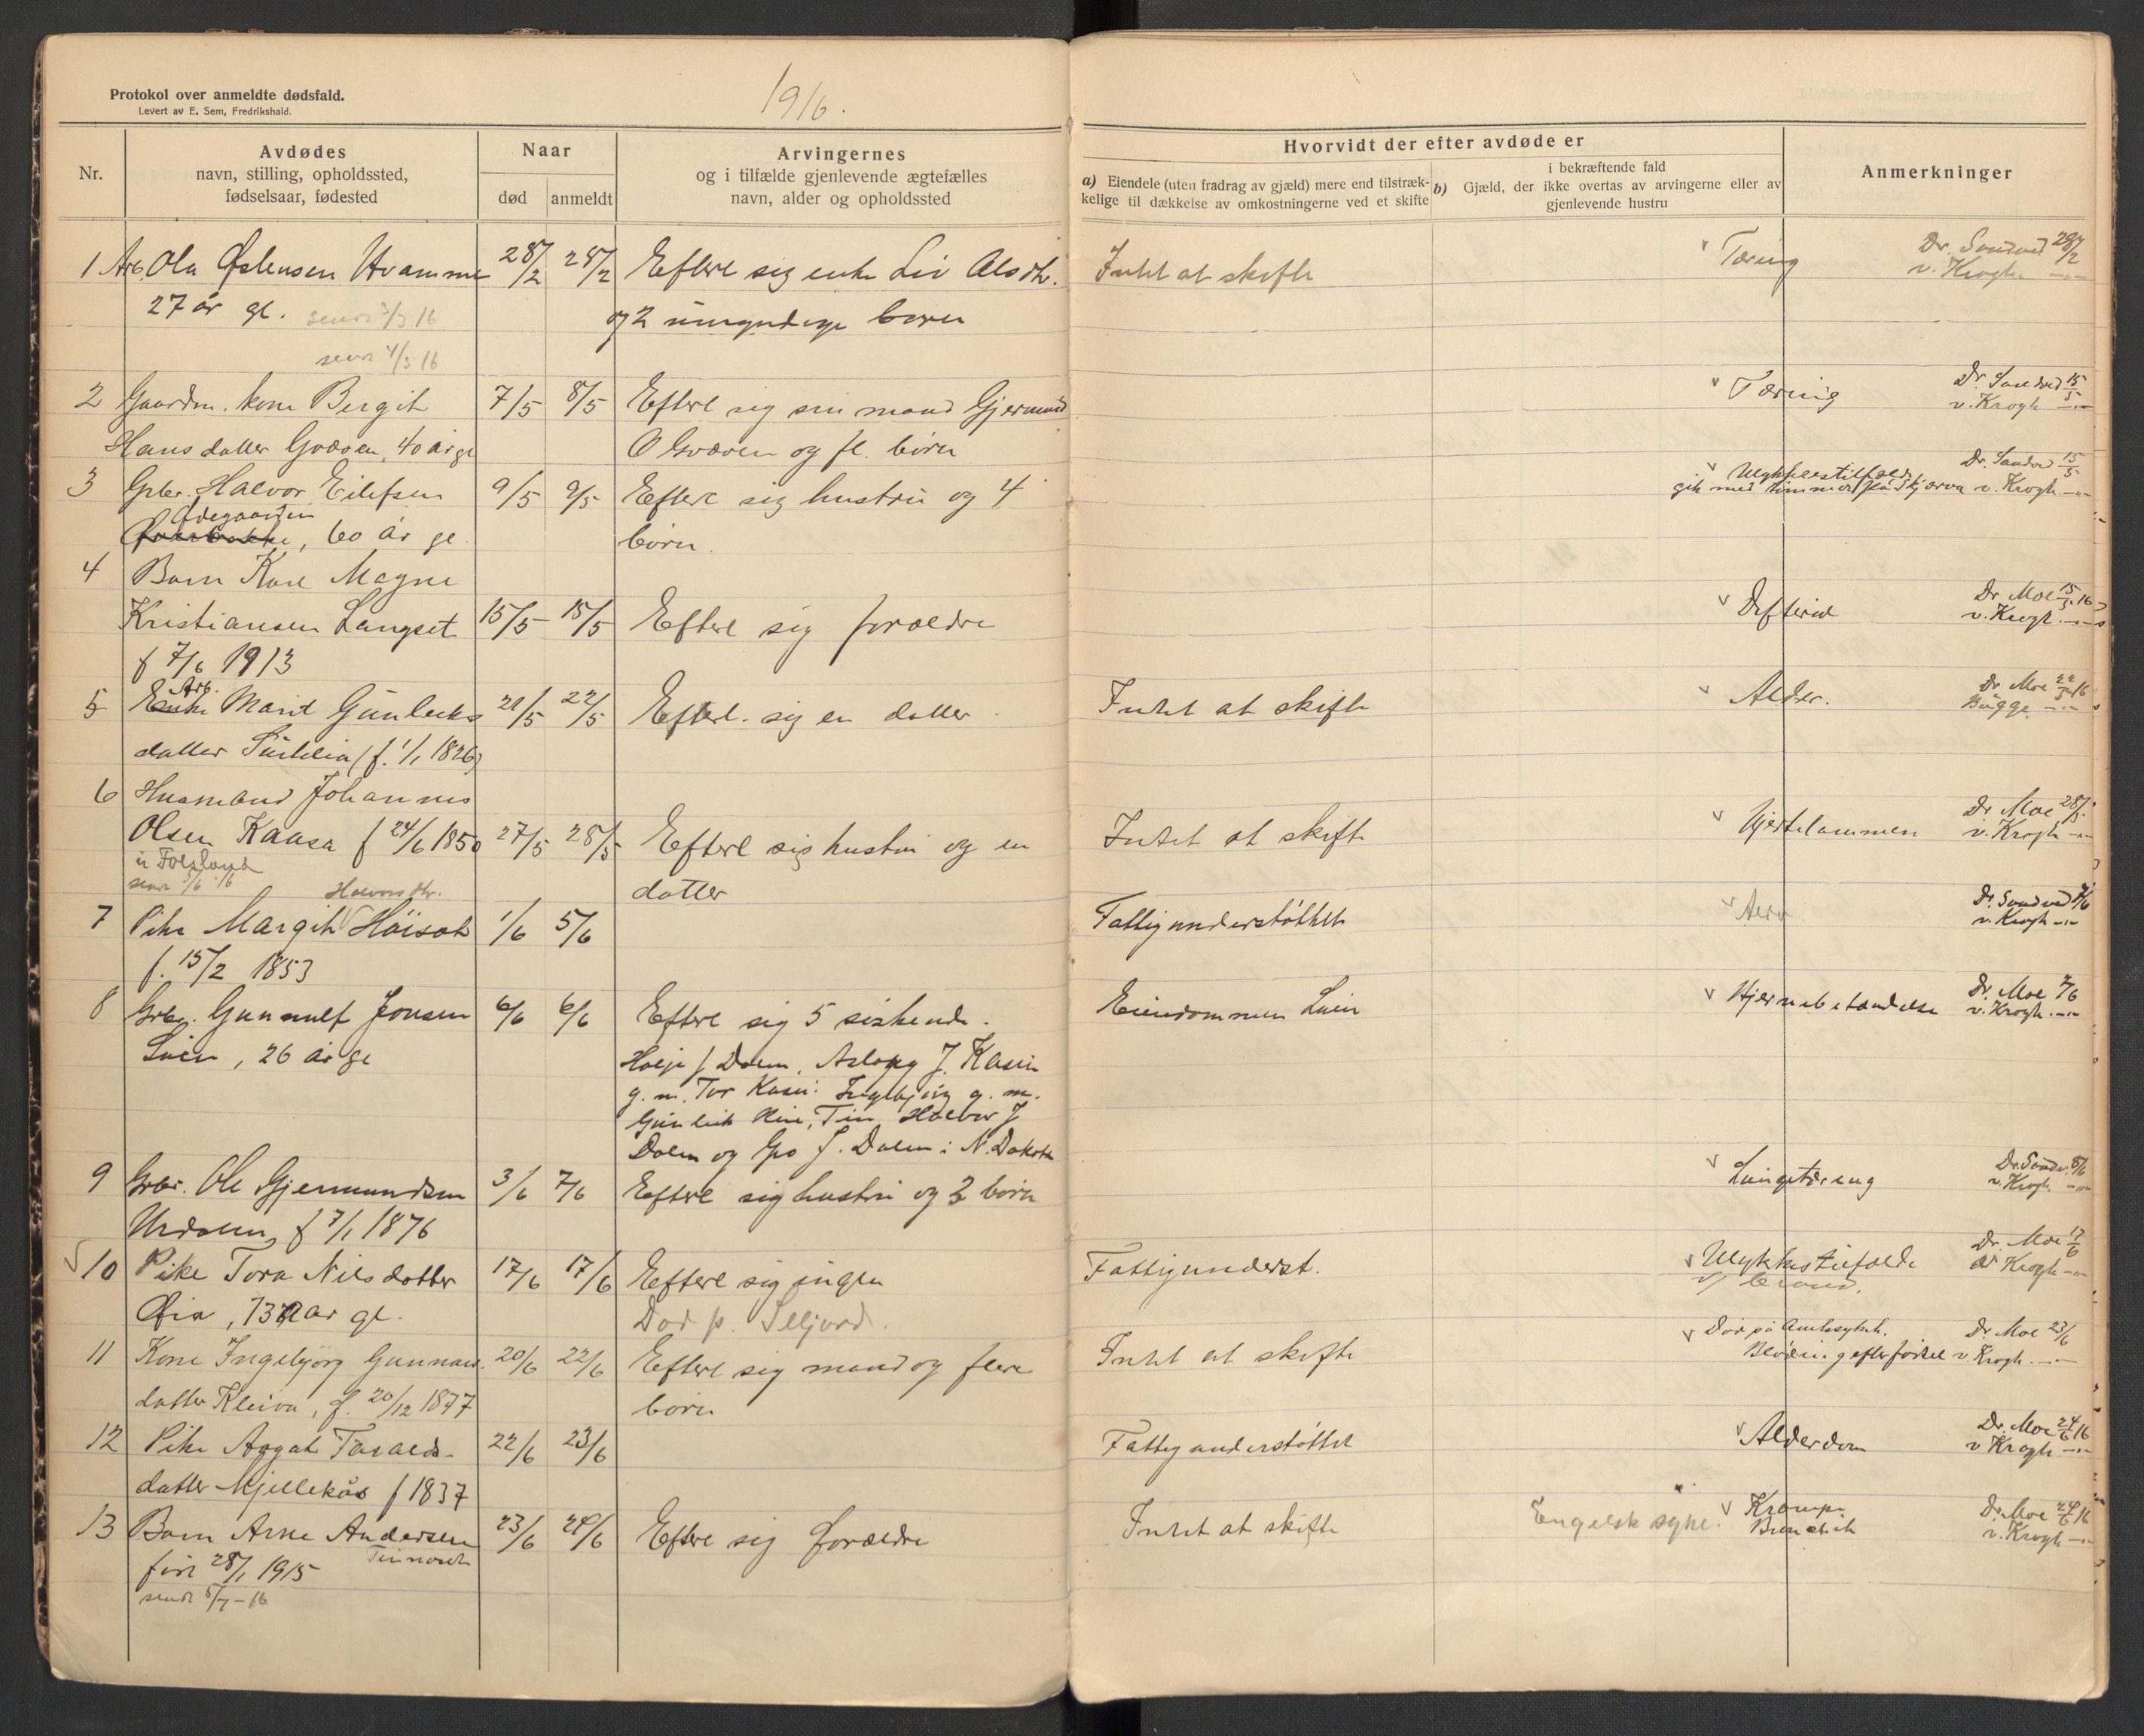 Protokol over anmeldte dødsfald.
Levert av E. Sem, Fredrikshald.
1916.
Nr.
Avdødes
navn, stilling, opholdssted,
fødselsaar, fødested
Naar
død
anmeldt
Arvingernes
og i tilfælde gjenlevende ægtefælles
navn, alder og opholdssted
Hvorvidt der efter avdøde er
a) Eiendele (uten fradrag av gjæld) mere end tilstræk-
kelige til dækkelse av omkostningerne ved et skifte
i bekræftende fald
b) Gjæld, der ikke overtas av arvingerne eller av
gjenlevende hustru
Anmerkninger
1 Arb. Ola Østensen Hvamme 28/2 28/2 Efterl sig enke Liv Alsdtr. Intet at skifte Tæring Dr. Sandved 28/2
27 år gl. sendt 3/3 16 og 2 umyndige børn v. Krogh -"-
sendt 4/5 16
2 Gaardm. kone Bergit 7/5 8/5 Efterl sig sin mand Gjermund Tæring Dr. Sandved 15/5
Hansdatter Gvåven, 40 år gl O Gvåven og fl. børn v. Krogh -"-
3 Grbr. Halvor Eilefsen 9/5 9/5 Efterl sig hustru og 4 Ulykkestilfælde Dr. Sandved 15/5
Ødegaarden gik med tømmer på Skjærva v. Krogh -"-
60 år gl. børn.
4 Barn Kare Magne
Kristiansen Langset 15/5 15/5 Efterl sig forældre Difterie Dr Moe 15/5 16
f 7/6 1913 v. Krogh -"-
Arb.
5 Enke Marit Gunleiks 21/5 22/5 Efterl. sig en datter. Intet at skifte Alder. Dr Moe 22/5 16
datter (f. 1/1 1826) Bugge -"-
6 Husmand Johannes
Olsen Kaasa f 24/6 1850 27/5 28/5 Efterl sig hustru og en Intet at skifte Hjertelammen Dr. Moe 28/5
v. Krogh -"-
datter
Halvorsdtr.
7 Pike Margit Höisæt 1/6 5/6 Fattigunderstöttet Dr. Sandved 7/6
f. 15/2 1853 v. Krogh -"-
8 Grbr. Gunnulf Jonsen 6/6 6/6 Efterl sig 5 siskende. Eiendommen Luen Hjernebetændelse Dr. Moe 7/6
26 år gl v. Krogh -"-
J Dalen, Aslaug J. Kasin
g. m. Tor Kasin. Ingebjörg g. m.
Gunleik Tin, Halvor J
Dalen og J. Dalen i N. Dakota
9 Grbr. Ole Gjermundsen 3/6 7/6 Efterl sig hustru og 3 børn Lungetæring Dr. Sandv. 8/6
Urdalen, f 7/1 1876 v. Krogh -"-
10 Pike Tora Nilsdatter 17/6 17/6 Efterl sig ingen Fattigunderst. Ulykkestilfælde Dr. Moe 17/6
Öia, år gl. Död p. Seljord. v/ brand. Krogh -"-
11 Kone Ingebjörg Gunnars- 20/6 22/6 Efterl sig mand og flere Intet at skifte Död på Amtssykeh. Dr. Moe 23/6
datter Kleiva, f. 20/12 1877 børn Blödning efter födsel v Krogh -"-
12 Pike Aagat Taralds- 22/6 23/6 Fattigunderstöttet Alderdom Dr. Moe 24/6 16
datter Mjellekås f 1837 v Krogh -"-
13 Barn Arne Andersen 23/6 24/6 Efterl sig forældre Intet at skifte Engelsk syke. Krampe Dr. Moe 24/6 16
Tinnoset
föd 28/1 1915 Bronchit v. Krogh -"-
sendt 5/7-16